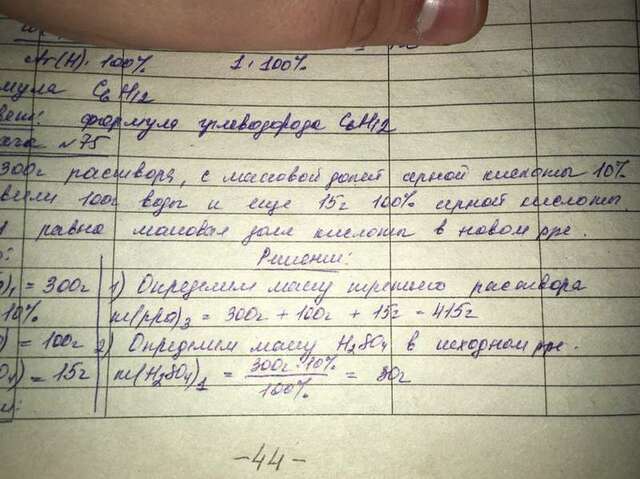 Ar(H)·100% 1·100%
мула C6H12
вет: формула углеводорода C6H12
ача №75
300г раствора, с массовой долей серной кислоты 10%
вили 100г воды и еще 15г 100% серной кислоты.
равна массовая доля кислоты в новом р-ре.
Решение:
)1 = 300г 1) Определим массу третьего раствора
10% m(р-ра)3 = 300г + 100г + 15г = 415г
) = 100г 2) Определим массу H2SO4 в исходном р-ре.
O4) = 15г m(H2SO4)1 = 300г·10% / 100% = 30г
-44-